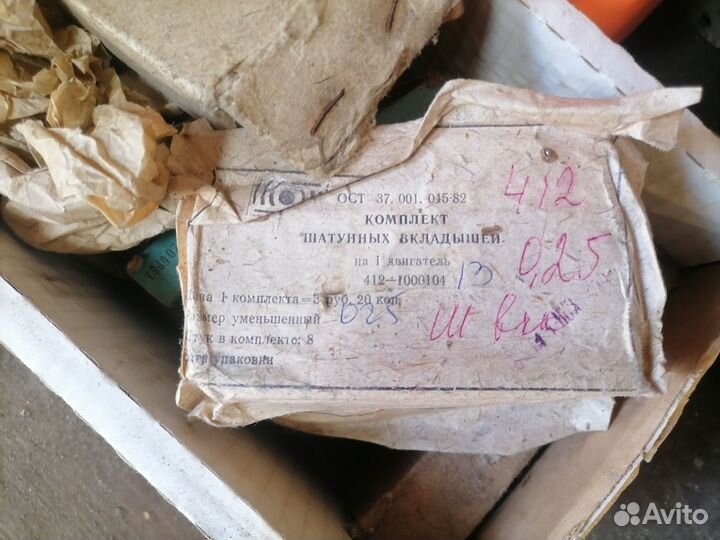 ОСТ 37.001.045-82
КОМПЛЕКТ
ШАТУННЫХ ВКЛАДЫШЕЙ
на 1 двигатель
412—1000104 13
цена 1 комплекта=3 руб. 20 коп.
размер уменьшенный 025
штук в комплекте: 8
дата упаковки
412
0,25
Ш вкл
Avito